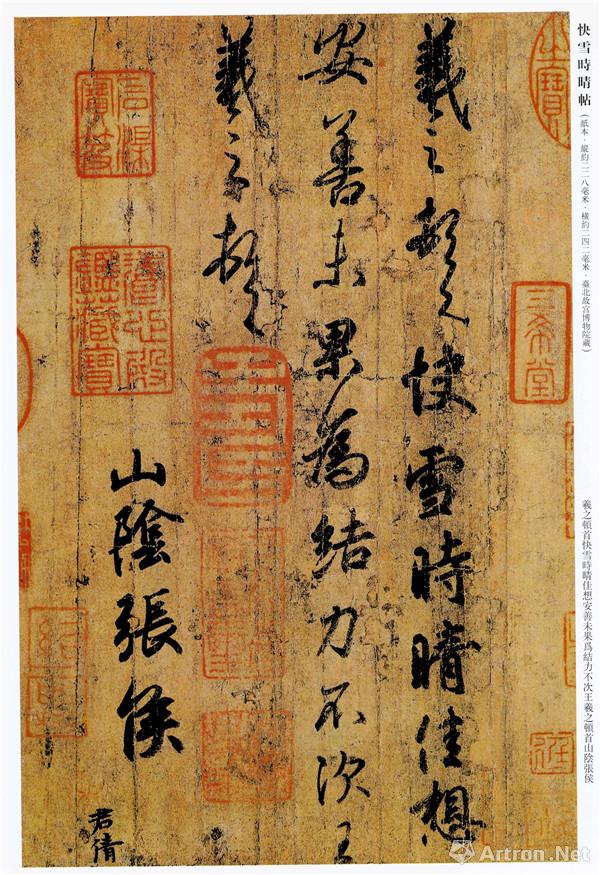 快雪時晴帖
(紙本·縱約二二八毫米·橫約二四二毫米·臺北故宮博物院藏)
羲之頓首快雪時晴佳想安善未果爲結力不次王羲之頓首山陰張侯
羲之頓首快雪時晴佳想
安善未果為結力不次王
羲之頓首
山陰張侯
君倩
三希堂
Artron.Net